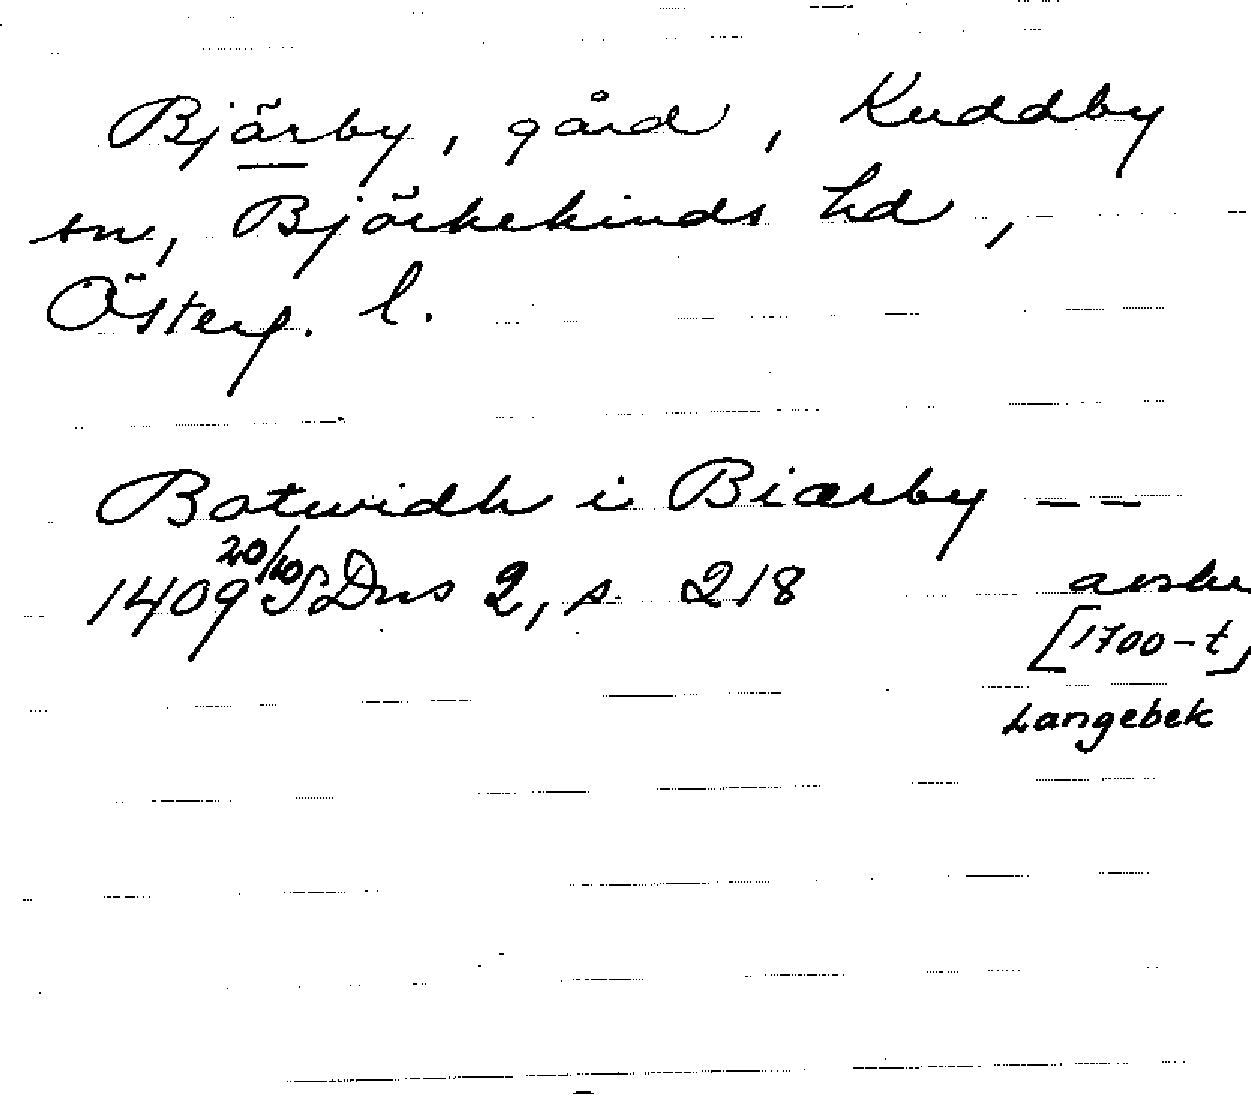 Bjärby, gård, Kuddby
sn, Björkekinds hd,
Österg. l.
Botwidh i Biærby – –
1409 20/10 SDns 2, s 218 avskr
[1700-t]
Langebek